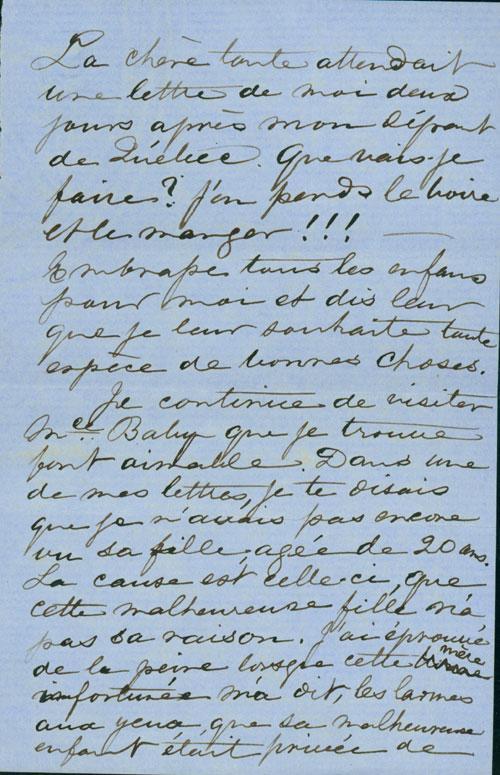 La chère tante attendait
une lettre de moi deux
jours après mon départ
de Québec. Que vais-je
faire? J'en perds le boire
et le manger!!! —
Embrasse tous les enfans
pour moi et dis leur
que je leur souhaite toute
espèce de bonnes choses.
Je continue de visiter
Mee Baby que je trouve
fort aimable. Dans une
de mes lettres, je te disais
que je n'avais pas encore
vu sa fille, agée de 20 ans.
La cause est celle-ci, que
cette malheureuse fille n'a
pas sa raison. J'ai éprouvé
de la peine lorsque cette mère
infortunée m'a dit, les larmes
aux yeux, que sa malheureuse
enfant était privée de